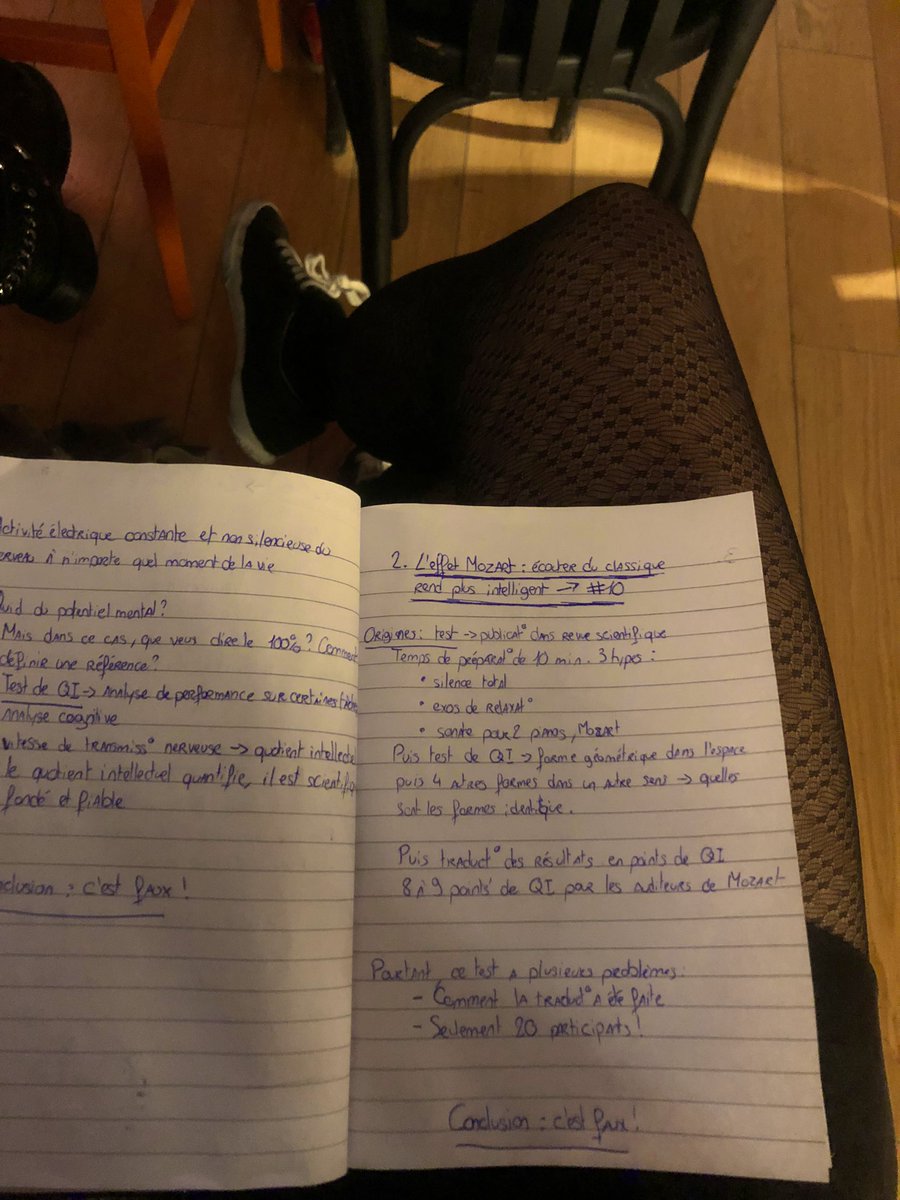 activité électrique constante et non silencieuse du
cerveau à n'importe quel moment de la vie
Quid du potentiel mental ?
Mais dans ce cas, que veut dire le 100% ? Comment
définir une référence ?
Test de QI → Analyse de performance sur certaines
Analyse cognitive
vitesse de transmiss° nerveuse → quotient intellectuel
le quotient intellectuel quantifie, il est scientifiq
fondé et fiable
Conclusion : c'est faux !
2. L'effet Mozart : écouter du classique
rend plus intelligent → #10
Origines : test → publicat° dans revue scientifique
Temps de préparat° de 10 min. 3 types :
• silence total
• exos de relaxat°
• sonate pour 2 pianos, Mozart
Puis test de QI → forme géométrique dans l'espace
puis 4 autres formes dans un autre sens → quelles
sont les formes identique.
Puis traduct° des résultats en points de QI
8 à 9 points de QI pour les auditeurs de Mozart
Pourtant, ce test a plusieurs problèmes :
- Comment la traduct° a été faite
- Seulement 20 participants !
Conclusion : c'est faux !